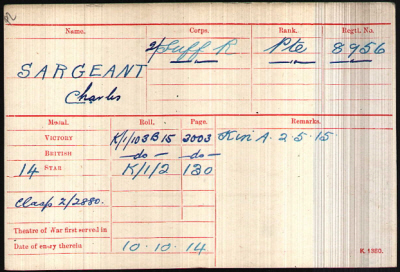 Name. Corps. Rank. Regtl. No.
2/Suff R Pte 8956
SARGEANT
Charles
Medal. Roll. Page. Remarks.
VICTORY K/1/103 B 15 2003 Kin A. 2.5.15.
BRITISH -do- -do-
14 STAR K/1/2 130
Clasp Z/2880.
Theatre of War first served in
Date of entry therein 10.10.14
K. 1380.